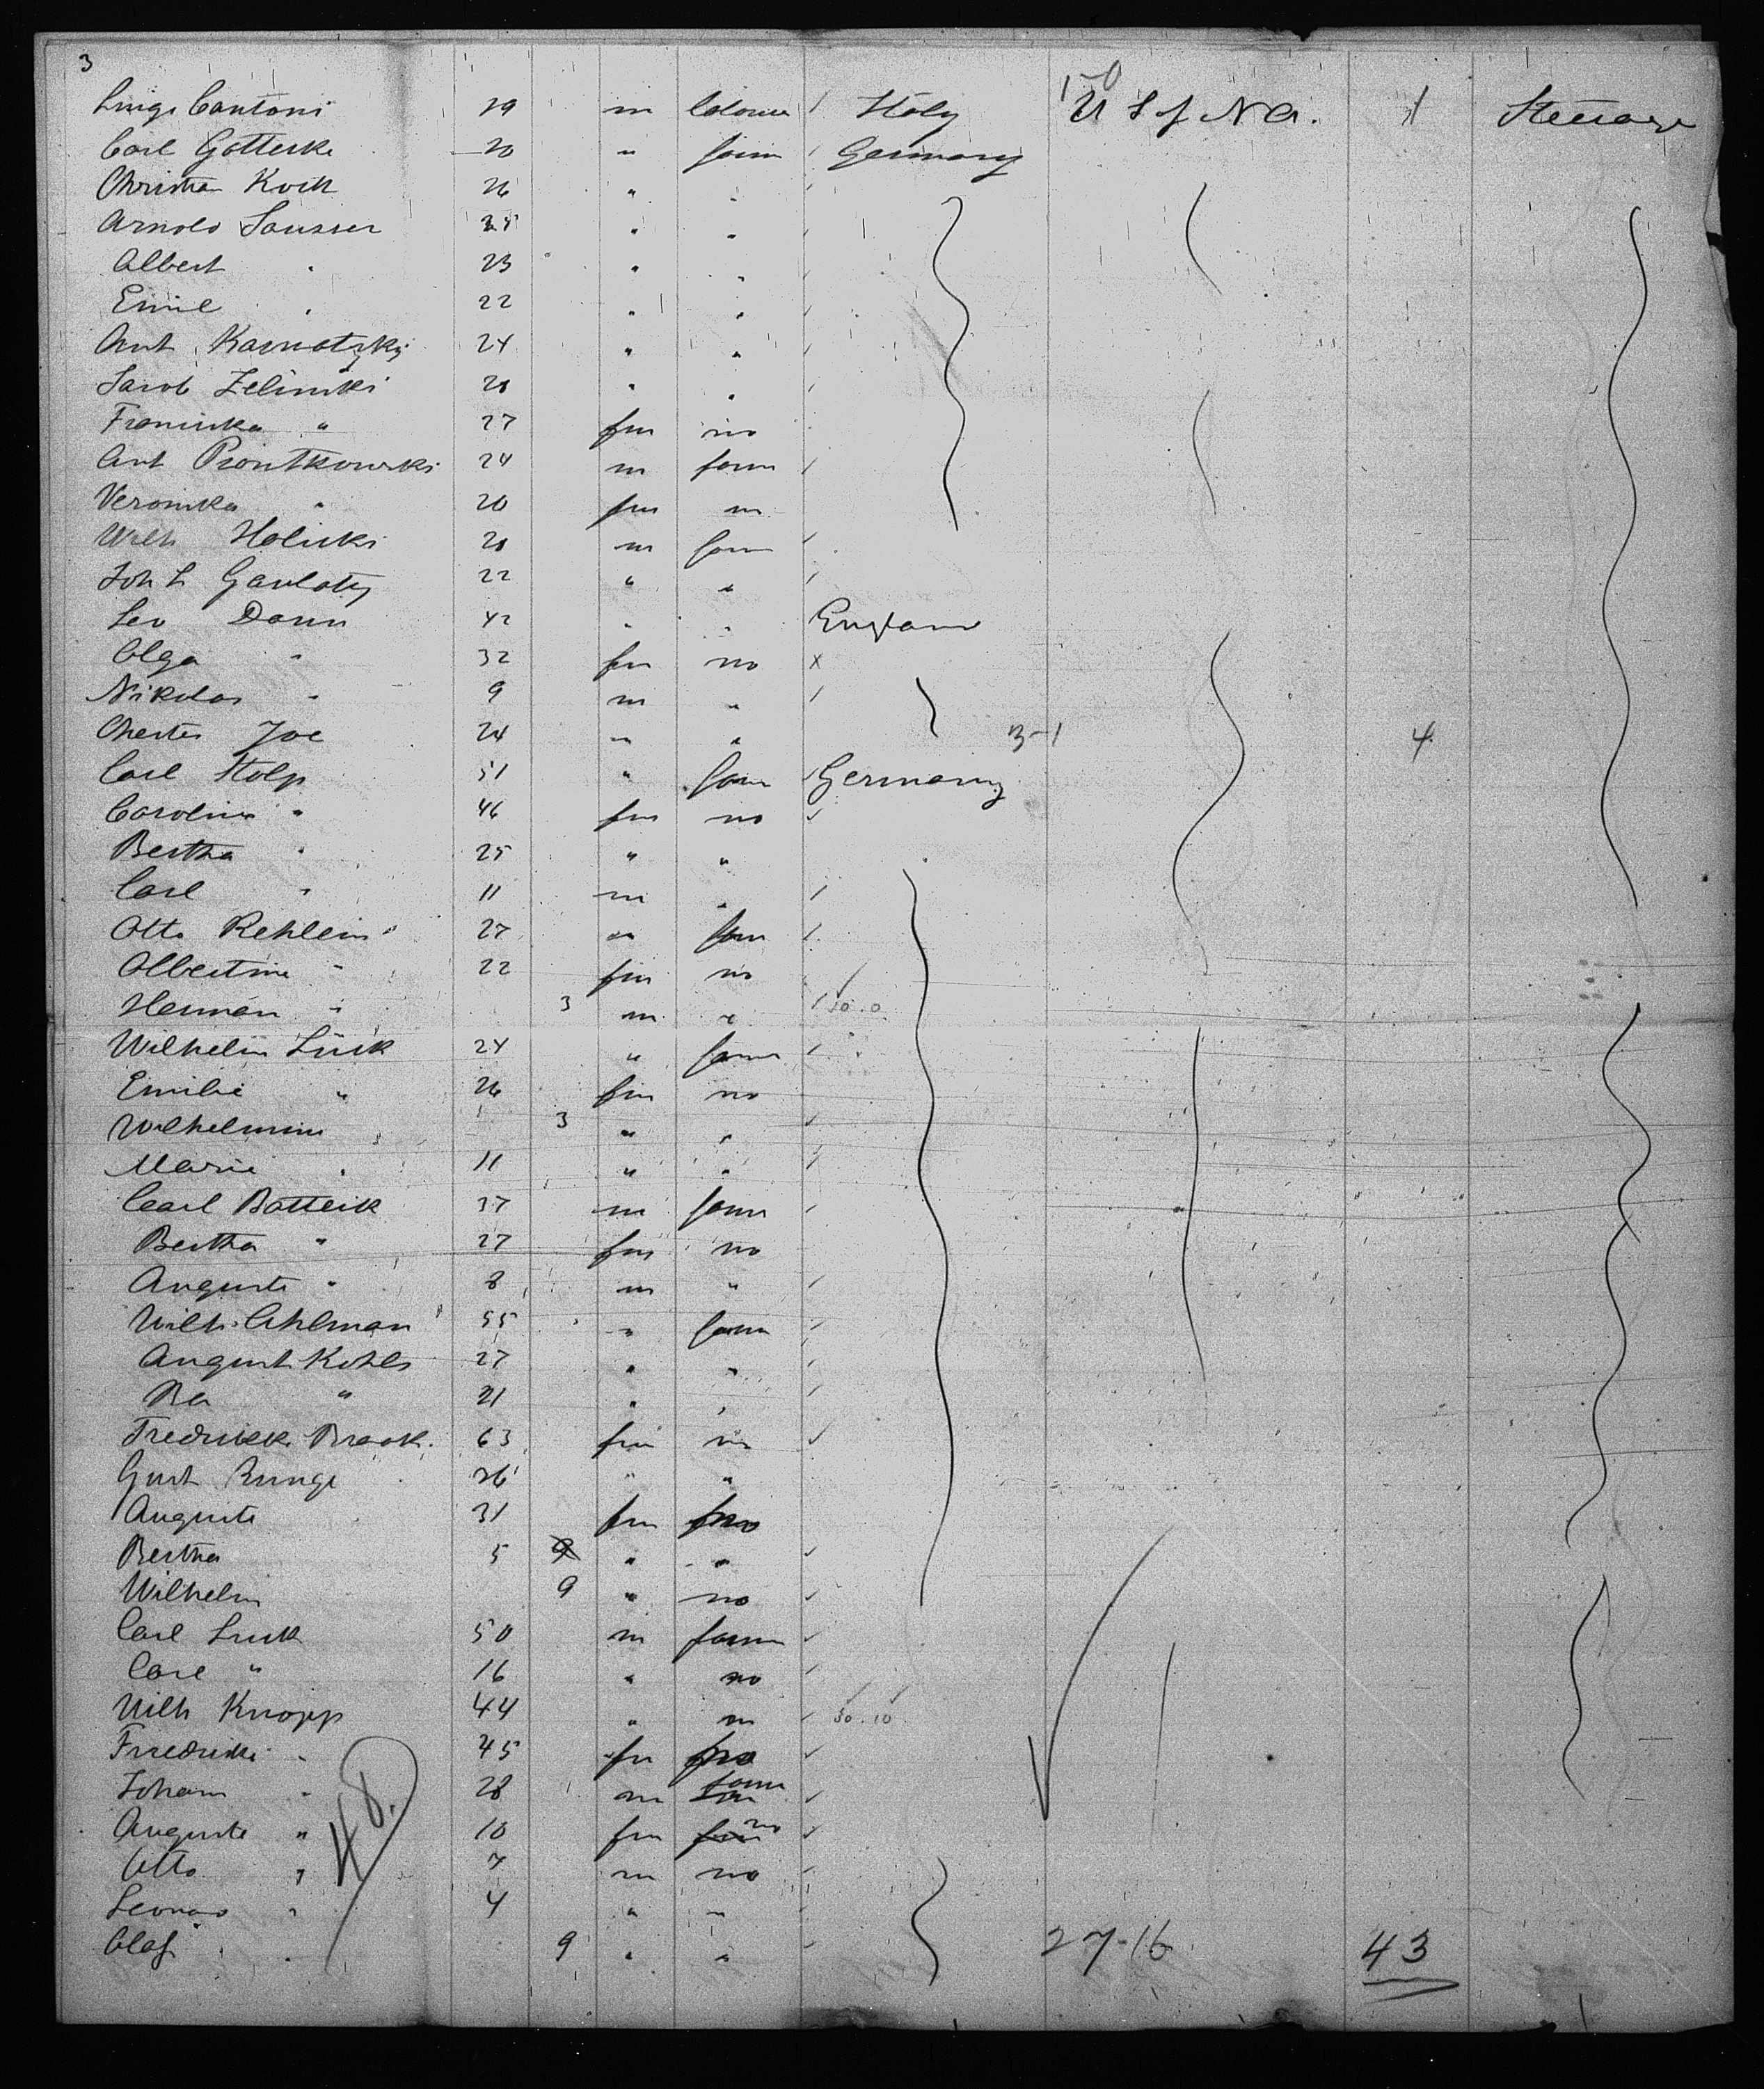 3
Luigi Cantoni 29 m Italy 1-0 U S of N A. 1 Steerage
Carl Gotterke 20 " farm Germany
Christian Koch 26 " "
Arnold Sausser " "
Albert " 23 " "
Emil " 22 " "
Ant 24 " "
Jacob Zelinski " "
Franciska " 27 fm no
Ant Piontkowski 24 m farm
Veronika " 20 fm no
Wilh Holicki m farm
Joh 22 " "
Leo Dann 42 " " England
Olga " 32 fm no x
Nikolas " 9 m "
Joe 24 " " 3-1 4
Carl Stolp 51 " farm Germany
Carolina " 46 fm no
Bertha " 25 " "
Carl " 11 m "
Otto Rehlein 27 " farm
Albertine " 22 fm no
Herman " 3 m "
Wilhelm Lück 24 " farm
Emilie " 26 fm no
Wilhelmine " 3 " "
Marie " 11 " "
Carl 37 m farm
Bertha " 27 fm no
Auguste " 8 m "
Wilh. Ahlman 55 " farm
August Kohls 27 " "
" 21 " "
63 fm no
Gust Runge 26 " "
Auguste 31 fm no
Bertha 5 " "
Wilhelm 9 " no
Carl Luck 50 m farm
Carl " 16 " no
Wilh Knopp 44 " m 30.10
" 45 fm no
Johann " 28 m farm
Auguste " 10 fm no
Otto " 7 m no
" 4 " "
Olaf " 9 " " 27-16 43
48.